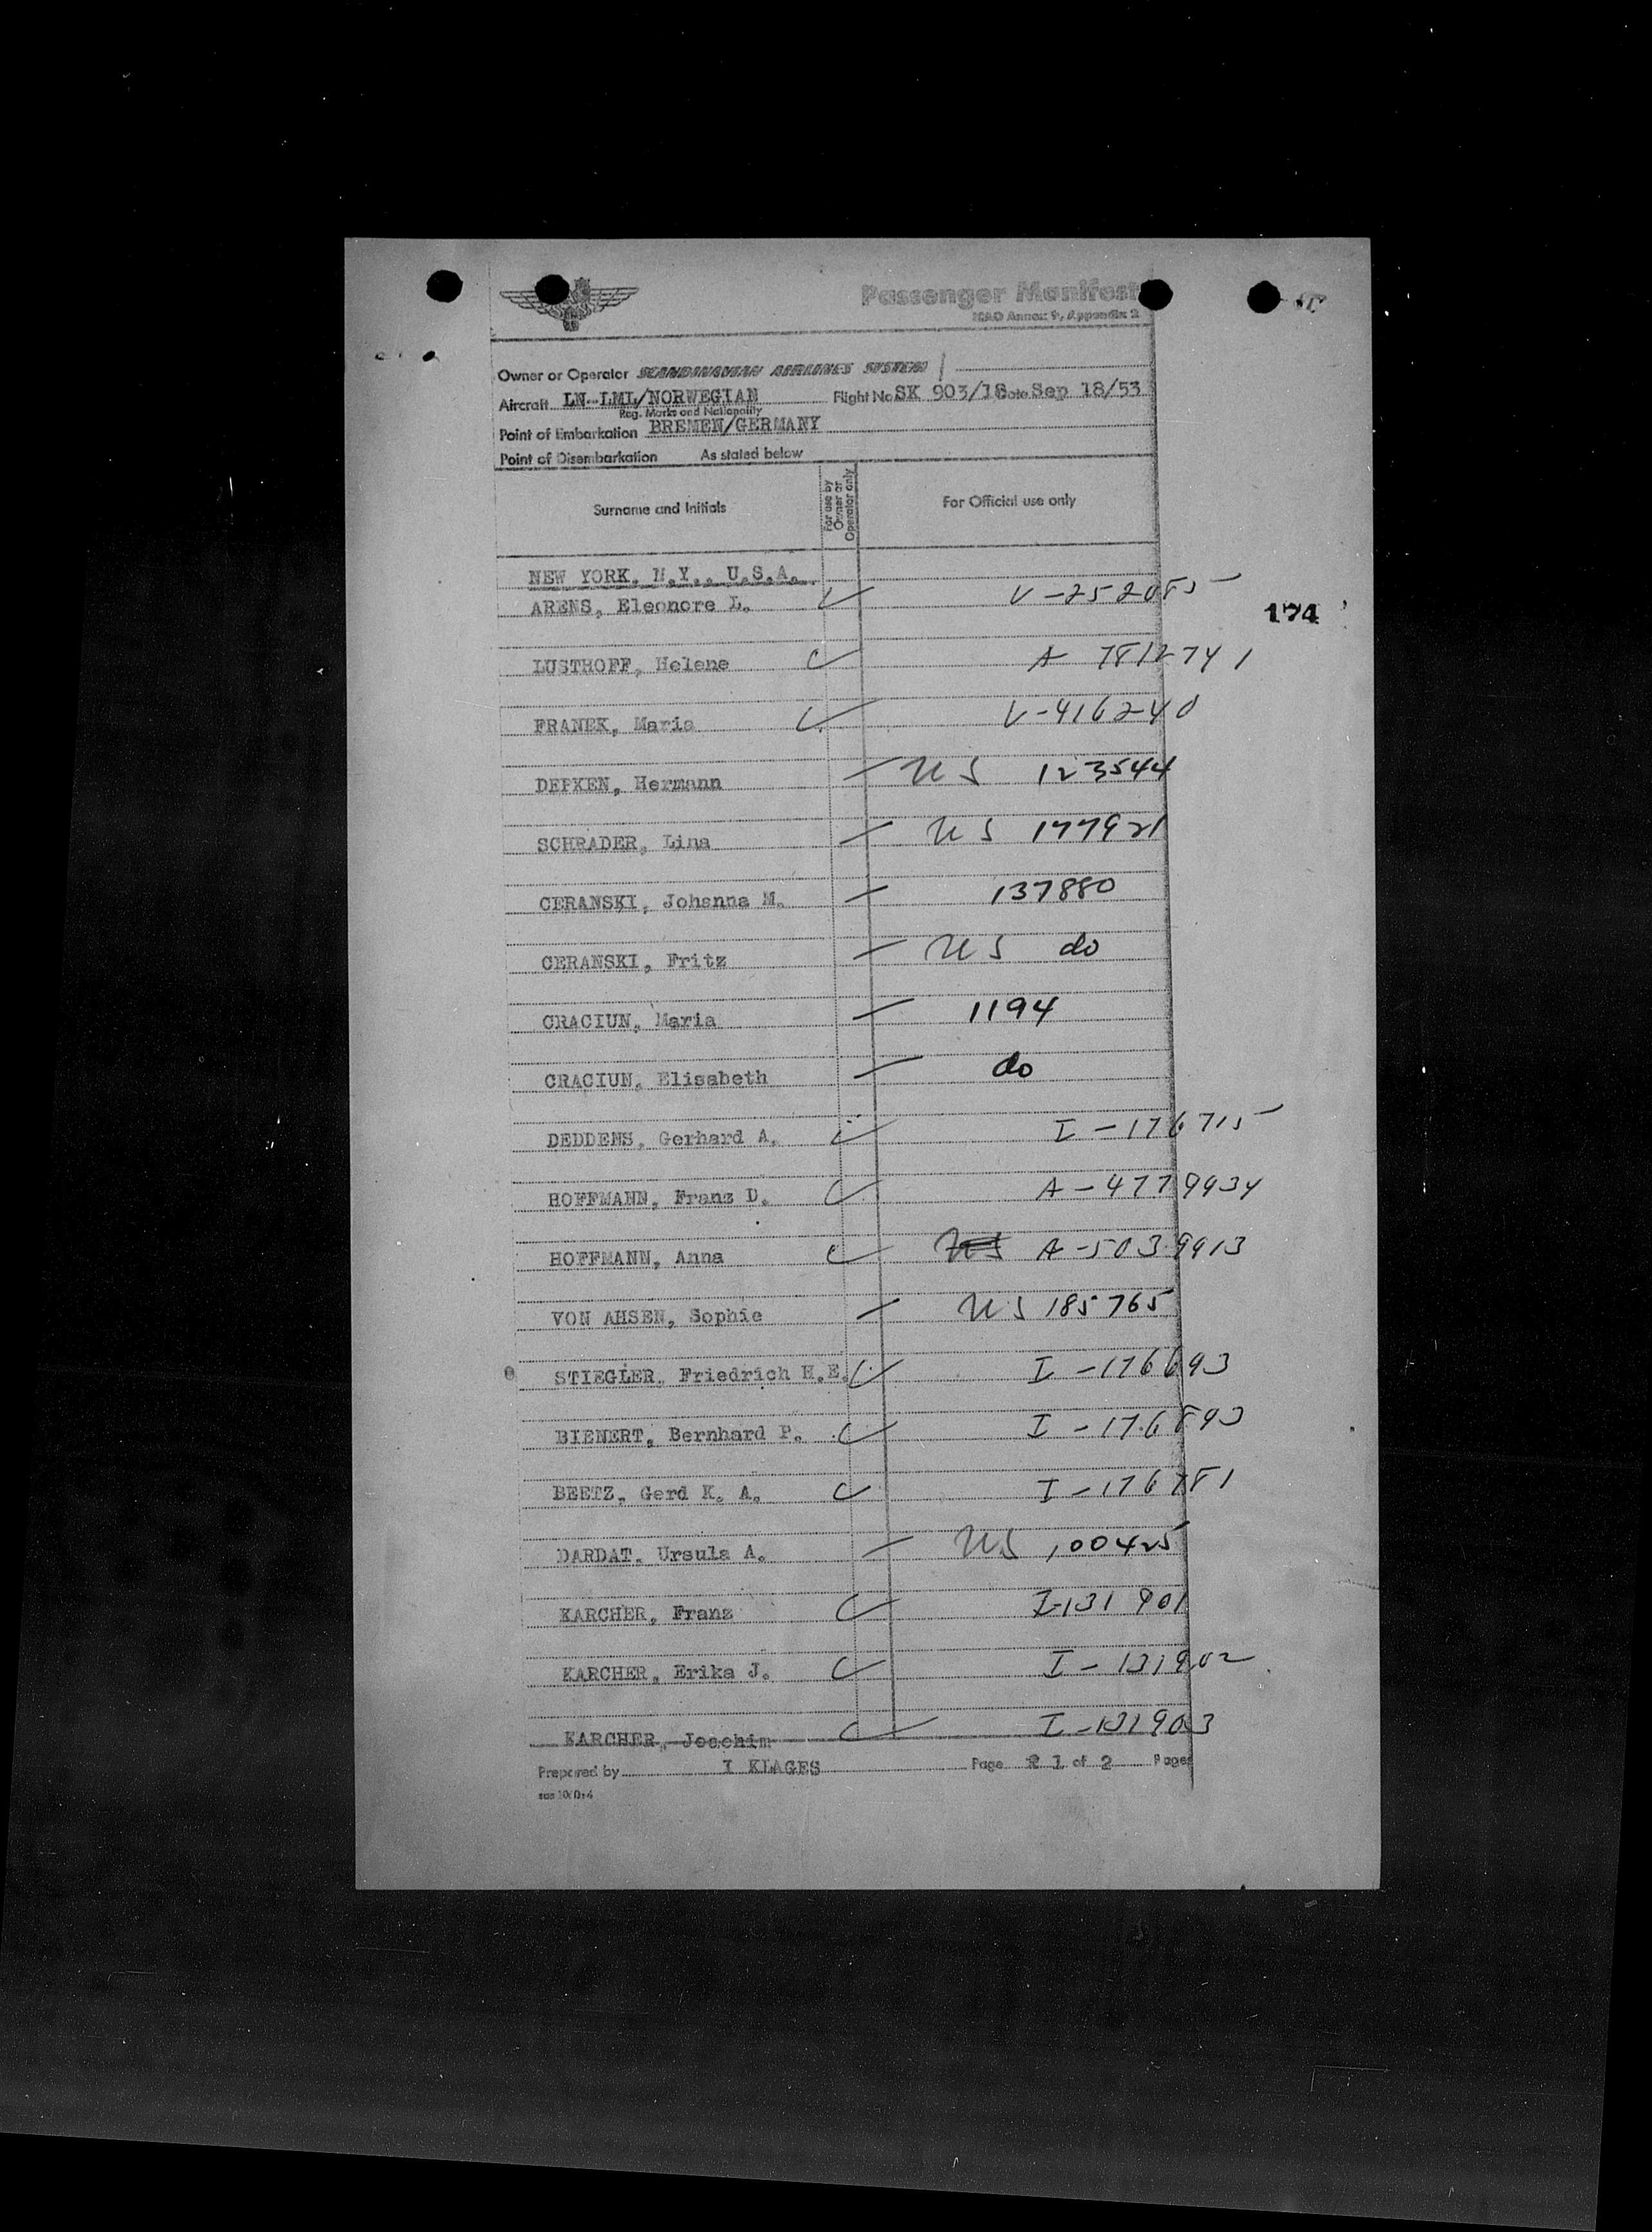 Passenger Manifest
ICAO Annex 9, Appendix 2
Owner or Operator SCANDINAVIAN AIRLINES SYSTEM
Aircraft LN-LML/NORWEGIAN Flight No SK 903/18 Date Sep 18/53
Reg. Marks and Nationality
Point of Embarkation BREMEN/GERMANY
Point of Disembarkation As stated below
Surname and Initials For use by Owner or Operator only For Official use only
NEW YORK, N.Y., U.S.A.
ARENS, Eleonore L. V-252085
174
LUSTHOFF, Helene A 7812741
FRANEK, Maria V-416240
DEPKEN, Hermann US 123544
SCHRADER, Lina US 177921
CERANSKI, Johanna M. 137880
CERANSKI, Fritz US do
CRACIUN, Maria 1194
CRACIUN, Elisabeth do
DEDDENS, Gerhard A. I-176715
HOFFMANN, Franz D. A-4779934
HOFFMANN, Anna US A-5039913
VON AHSEN, Sophie US 185765
STIEGLER, Friedrich H.E. I-176693
BIENERT, Bernhard P. I-176893
BEETZ, Gerd K. A. I-176781
DARDAT, Ursula A. US 100425
KARCHER, Franz I-131901
KARCHER, Erika J. I-131902
KARCHER, Joachim I-131903
Prepared by I KLAGES Page 1 of 2 Pages